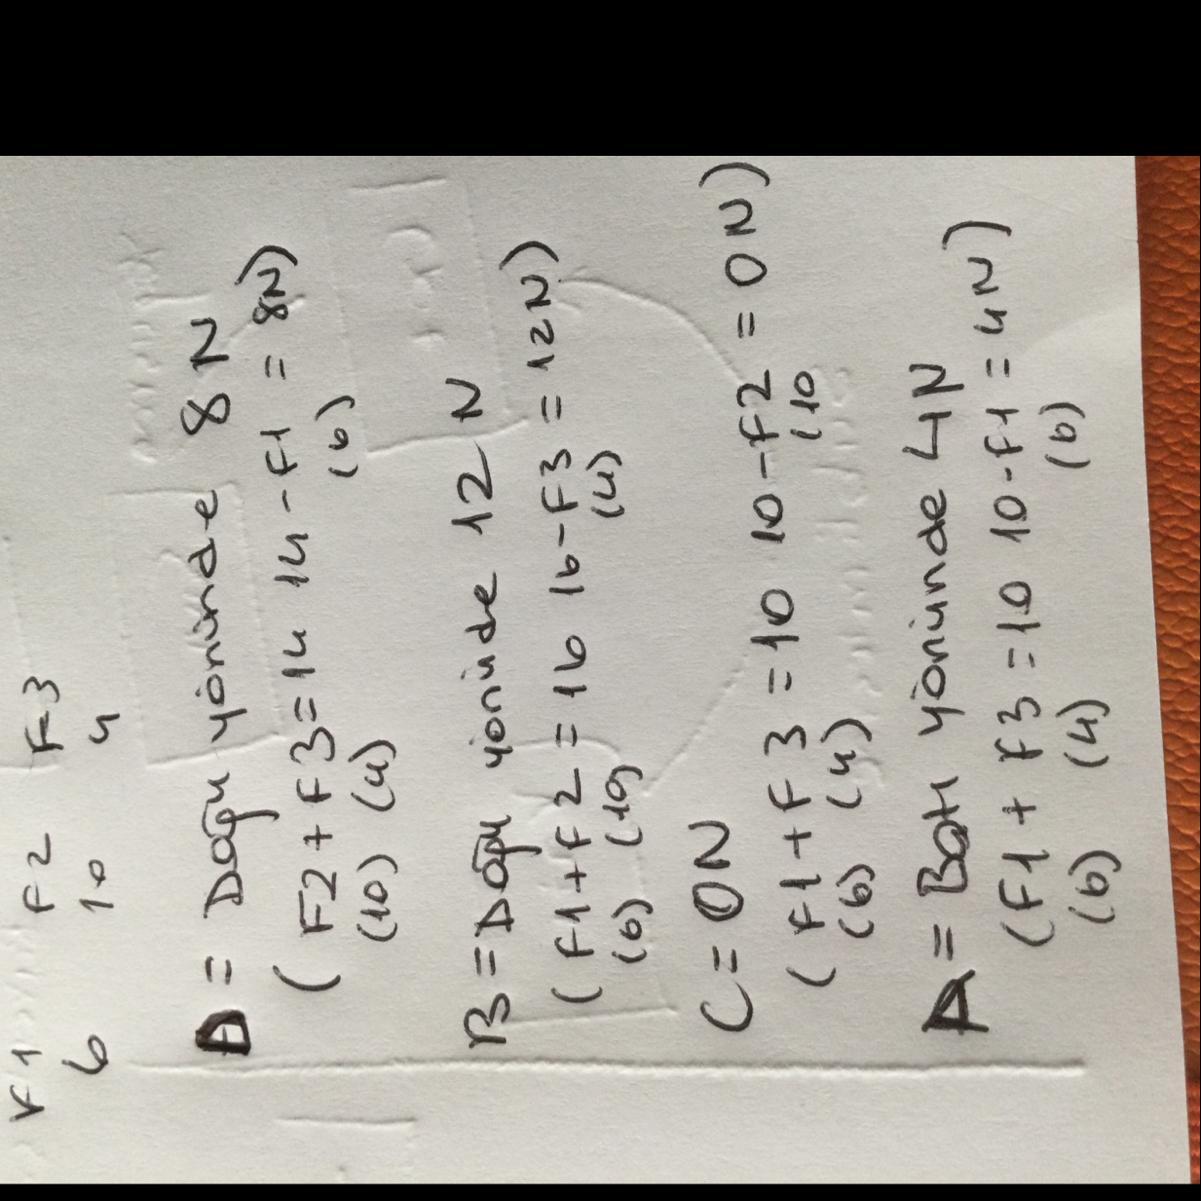 F1 F2 F3
6 10 4
D = Doğu yönünde 8 N
(F2 + F3 = 14 14 - F1 = 8N)
(10) (4) (6)
B = Doğu yönüde 12 N
(F1 + F2 = 16 16 - F3 = 12N)
(6) (10) (4)
C = 0N
(F1 + F3 = 10 10 - F2 = 0N)
(6) (4) (10
A = Batı yönünde 4N
(F1 + F3 = 10 10 - F1 = 4N)
(6) (4) (6)